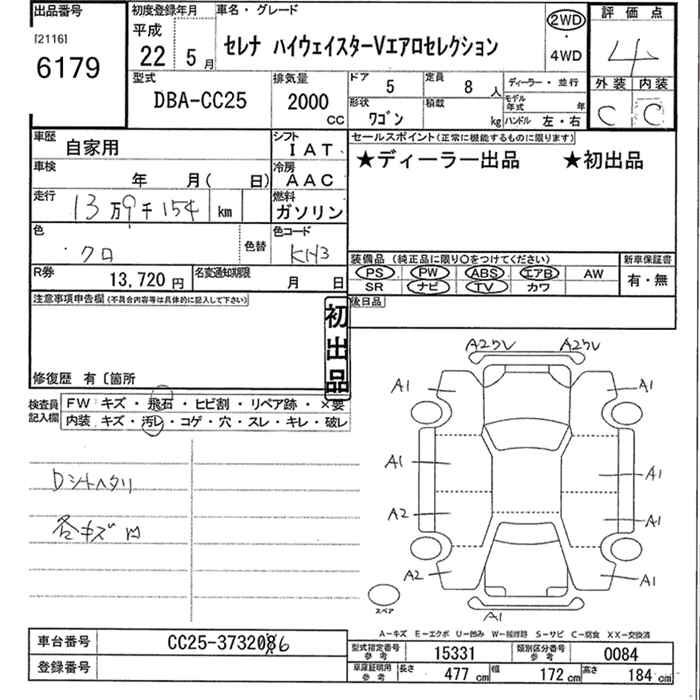 出品番号 初度登録年月 車名・グレード 2WD 評価点
[2116] 平成
6179 22 5月 セレナ ハイウェイスターVエアロセレクション ・ 4
4WD
型式 排気量 ドア 5 定員 8人 ディーラー・並行 外装 内装
DBA-CC25 2000cc 形状 ワゴン 積載 kg モデル年式 年 C C
ハンドル 左・右
車歴 自家用 シフト IAT セールスポイント(正常に機能するものに限ります)
車検 年 月( 日) 冷房 AAC ★ディーラー出品 ★初出品
走行 13万9千154 km 燃料 ガソリン
色 クロ 色替 色コード KH3
装備品 (純正品に限り○をつけてください) 新車保証書
PS PW ABS エアB AW 有・無
R券 13,720円 名変通知期限 月 日 SR ナビ TV カワ
注意事項申告欄(不具合内容等は具体的に記入して下さい) 後日品
初出品
修復歴 有〔箇所
検査員記入欄 FW キズ・飛石・ヒビ割・リペア跡・×要
内装 キズ・汚レ・コゲ・穴・スレ・キレ・破レ
Dシートヘタリ
各キズ凹
A2ワレ A2ワレ
A1 A1
A1 A1
A2 A1
A2 A1
A1
スペア
A-キズ E-エクボ U-凹み W-補修跡 S-サビ C-腐食 XX-交換済
車台番号 CC25-373286 型式指定番号 参考 15331 類別区分番号 参考 0084
登録番号 車庫証明用 参考 長さ 477cm 幅 172cm 高さ 184cm